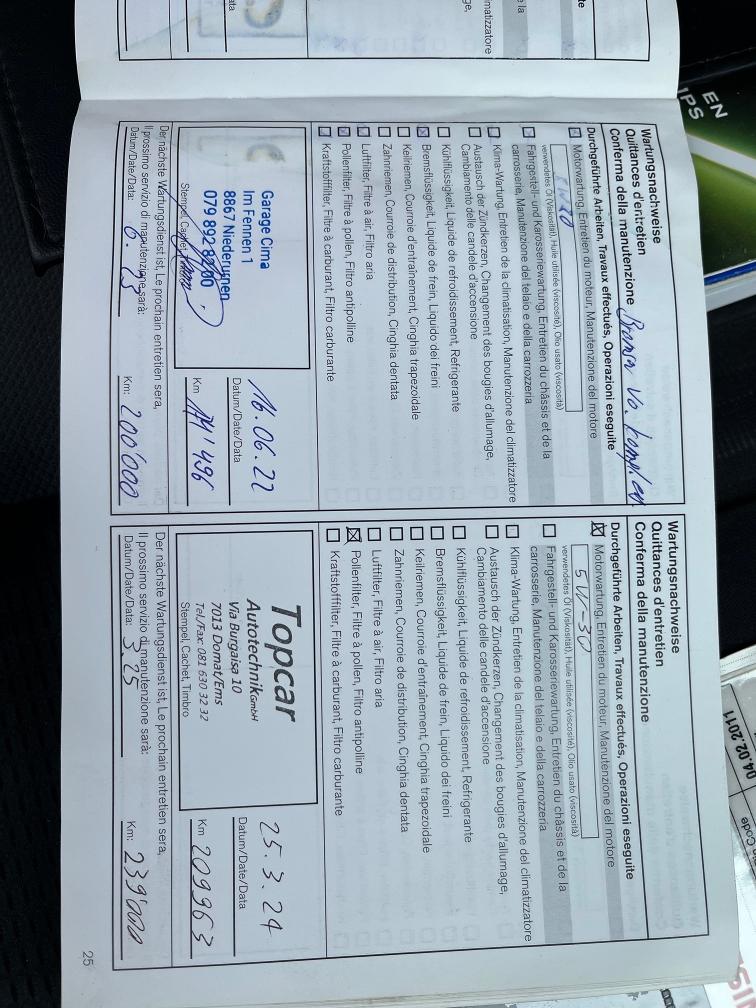 Wartungsnachweise
Quittances d'entretien
Conferma della manutenzione Bremsen Vo.
Durchgeführte Arbeiten, Travaux effectués, Operazioni eseguite
Motorwartung, Entretien du moteur, Manutenzione del motore
verwendetes Öl (Viskosität), Huile utilisée (viscosité), Olio usato (viscosità)
Fahrgestell- und Karosseriewartung, Entretien du châssis et de la
carrosserie, Manutenzione del telaio e della carrozzeria
Klima-Wartung, Entretien de la climatisation, Manutenzione del climatizzatore
Austausch der Zündkerzen, Changement des bougies d'allumage,
Cambiamento delle candele d'accensione
Kühlflüssigkeit, Liquide de refroidissement, Refrigerante
Bremsflüssigkeit, Liquide de frein, Liquido dei freini
Keilriemen, Courroie d'entraînement, Cinghia trapezoidale
Zahnriemen, Courroie de distribution, Cinghia dentata
Luftfilter, Filtre à air, Filtro aria
Pollenfilter, Filtre à pollen, Filtro antipolline
Kraftstofffilter, Filtre à carburant, Filtro carburante
Garage Cima
Im Fennen 1
8867 Niederurnen
Stempel, Cachet, Timbro
16.06.22
Datum/Date/Data
Km
Der nächste Wartungsdienst ist, Le prochain entretien sera,
Il prossimo servizio di manutenzione sarà:
Datum/Date/Data: 6.23 Km: 200'000
Wartungsnachweise
Quittances d'entretien
Conferma della manutenzione
Durchgeführte Arbeiten, Travaux effectués, Operazioni eseguite
Motorwartung, Entretien du moteur, Manutenzione del motore
5W-30
verwendetes Öl (Viskosität), Huile utilisée (viscosité), Olio usato (viscosità)
Fahrgestell- und Karosseriewartung, Entretien du châssis et de la
carrosserie, Manutenzione del telaio e della carrozzeria
Klima-Wartung, Entretien de la climatisation, Manutenzione del climatizzatore
Austausch der Zündkerzen, Changement des bougies d'allumage,
Cambiamento delle candele d'accensione
Kühlflüssigkeit, Liquide de refroidissement, Refrigerante
Bremsflüssigkeit, Liquide de frein, Liquido dei freini
Keilriemen, Courroie d'entraînement, Cinghia trapezoidale
Zahnriemen, Courroie de distribution, Cinghia dentata
Luftfilter, Filtre à air, Filtro aria
Pollenfilter, Filtre à pollen, Filtro antipolline
Kraftstofffilter, Filtre à carburant, Filtro carburante
Topcar
Autotechnik GmbH
Via Burgaisa 10
7013 Domat/Ems
Tel./Fax: 081 630 32 32
Stempel, Cachet, Timbro
25.3.24
Datum/Date/Data
Km 209963
Der nächste Wartungsdienst ist, Le prochain entretien sera,
Il prossimo servizio di manutenzione sarà:
Datum/Date/Data: 3.25 Km: 239'000
25
EN